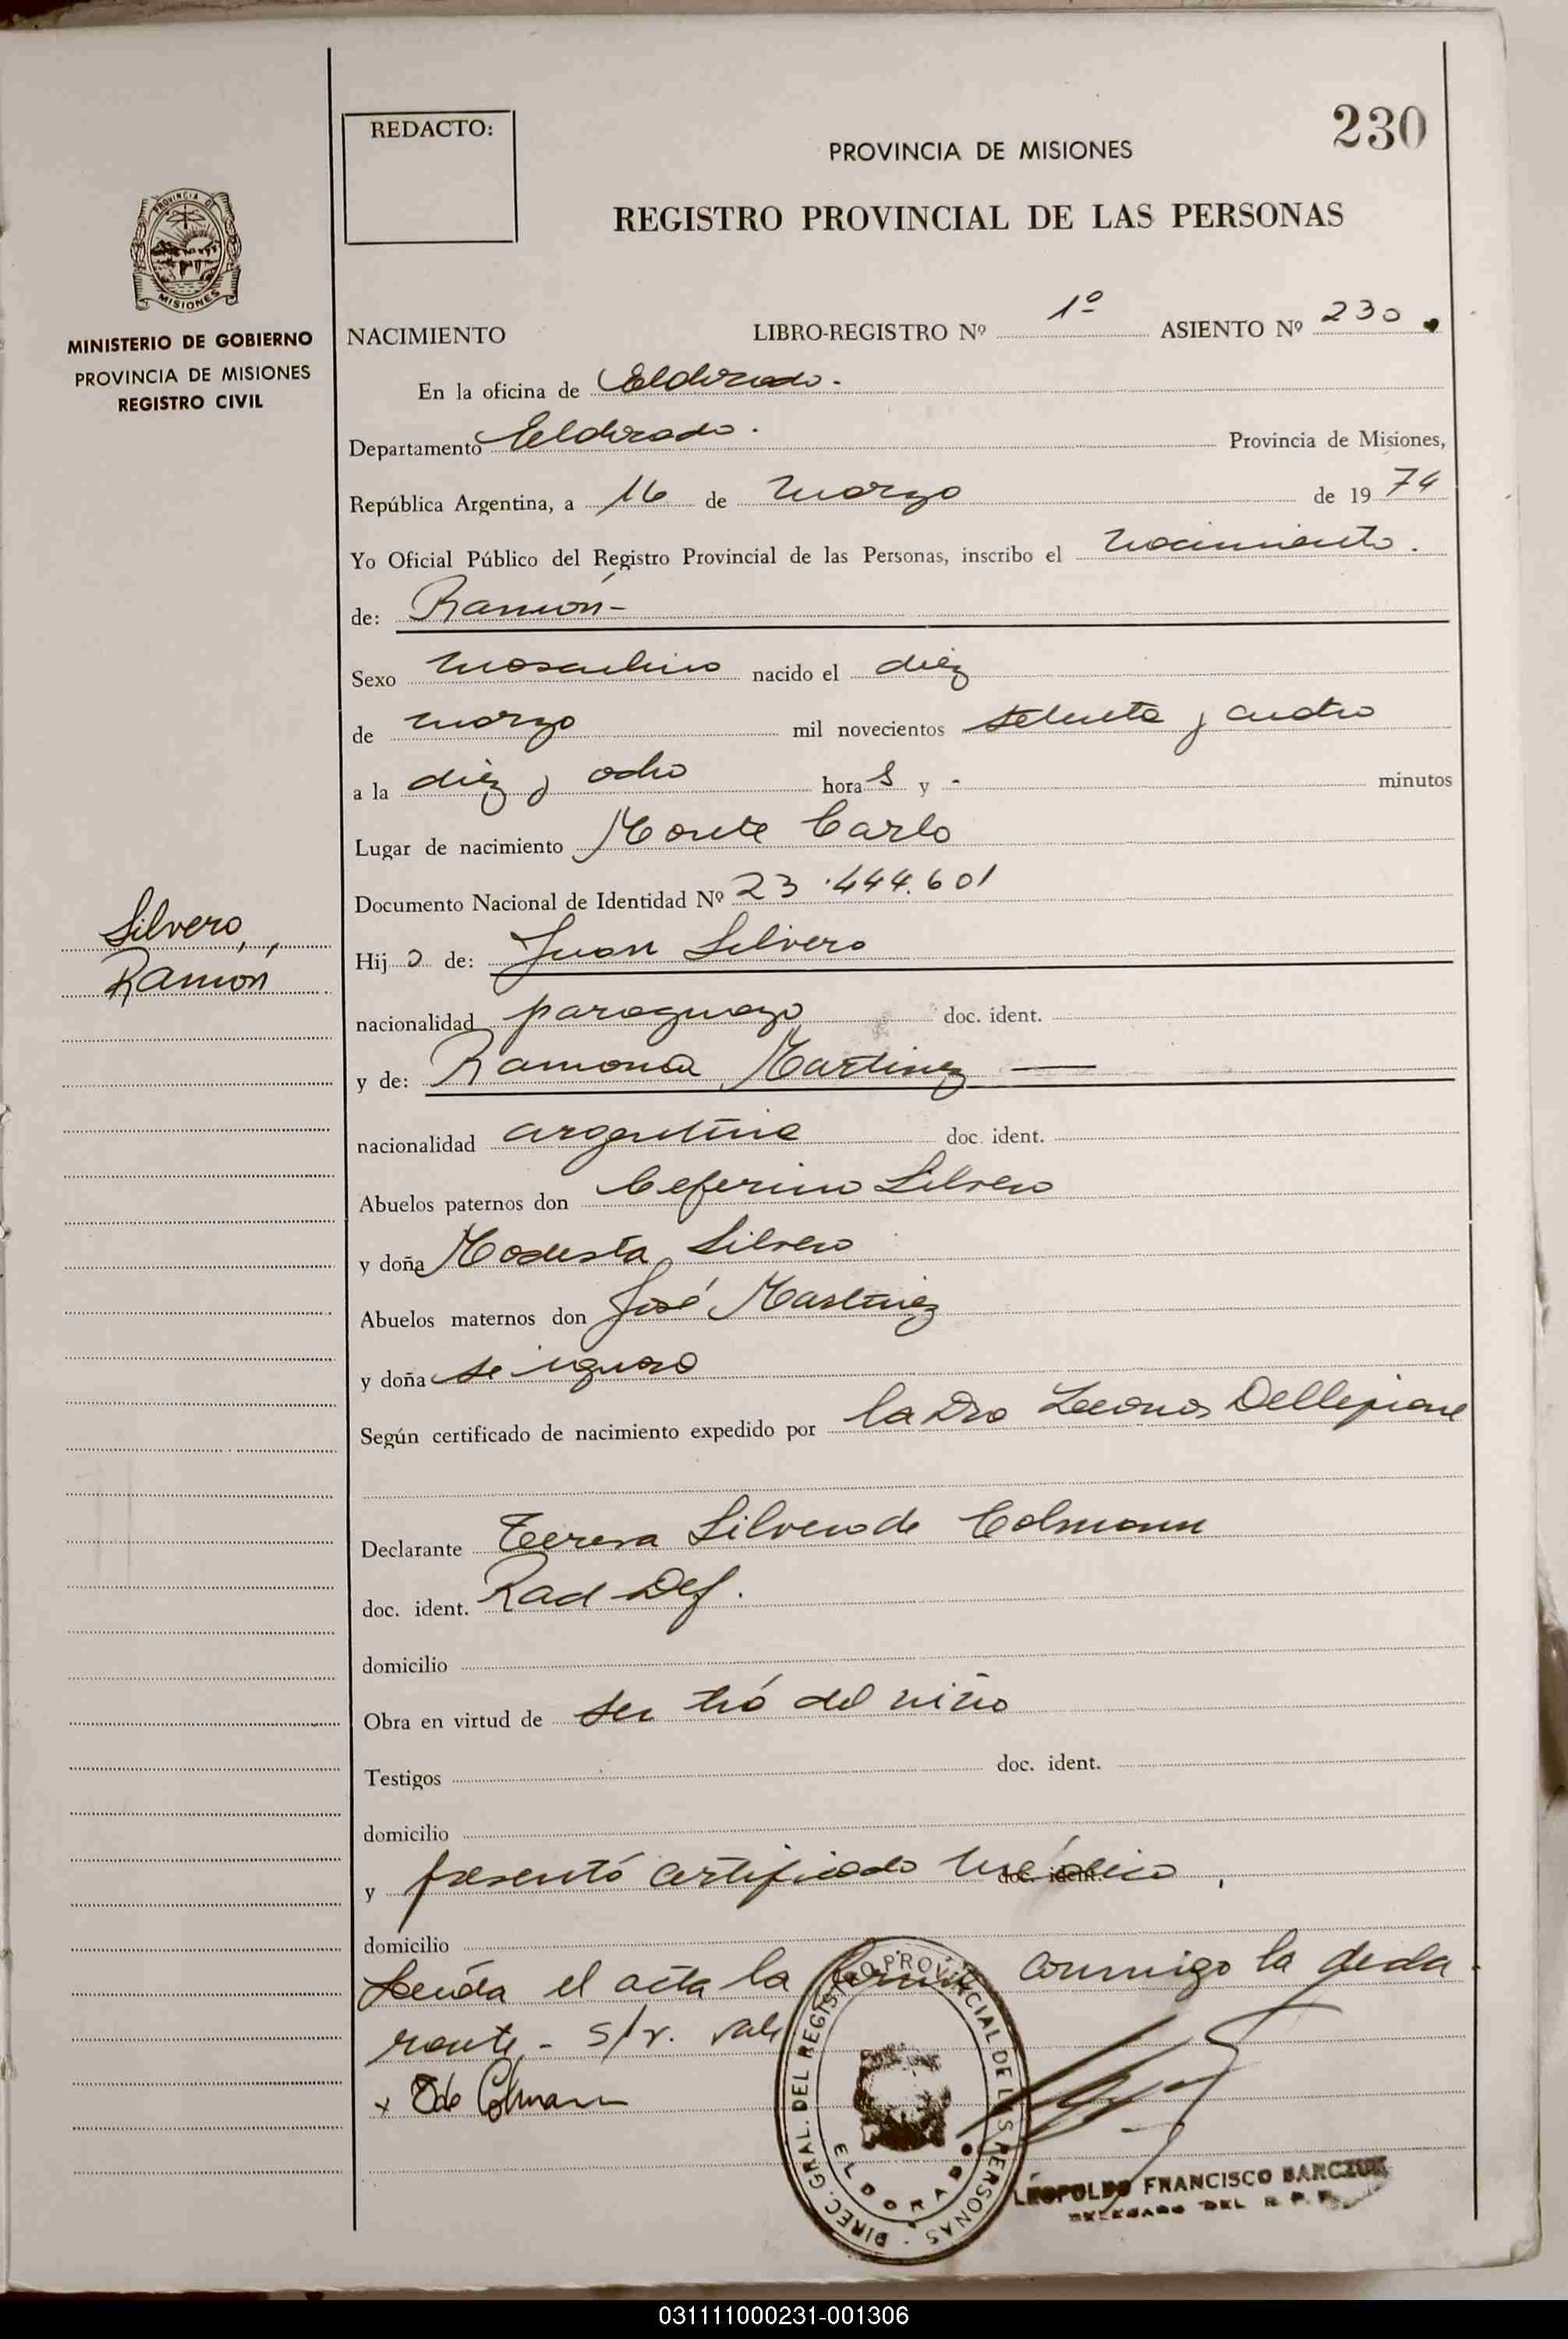 230
REDACTO:
PROVINCIA DE MISIONES
REGISTRO PROVINCIAL DE LAS PERSONAS
PROVINCIA DE
MISIONES
MINISTERIO DE GOBIERNO
PROVINCIA DE MISIONES
REGISTRO CIVIL
NACIMIENTO LIBRO-REGISTRO Nº 1º ASIENTO Nº 230.
En la oficina de Eldorado.
Departamento Eldorado. Provincia de Misiones,
República Argentina, a 16 de marzo de 1974
Yo Oficial Público del Registro Provincial de las Personas, inscribo el nacimiento.
de: Ramón-
Sexo masculino nacido el diez
de marzo mil novecientos setenta y cuatro
a la diez y ocho horas y - minutos
Lugar de nacimiento Monte Carlo
Documento Nacional de Identidad Nº 23.444.601
Silvero,
Ramón
Hijo de: Juan Silvero
nacionalidad paraguayo doc. ident.
y de: Ramona Martinez —
nacionalidad argentina doc. ident.
Abuelos paternos don Ceferino Silvero
y doña Modesta Silvero
Abuelos maternos don José Martinez
y doña se ignora
Según certificado de nacimiento expedido por la Dra Leonor Dellepiane
Declarante Teresa Silvero de Colmann
doc. ident. Rad Def.
domicilio
Obra en virtud de ser tía del niño
Testigos doc. ident.
domicilio
y presentó certificado médico, doc. ident.
domicilio
Leída el acta la firma conmigo la decla
rante.- s/r. vale
x T de Colmann
DIREC. GRAL. DEL REGISTRO PROVINCIAL DE LAS PERSONAS
ELDORADO
LEOPOLDO FRANCISCO BARCZUK
DELEGADO DEL R. P. P.
031111000231-001306